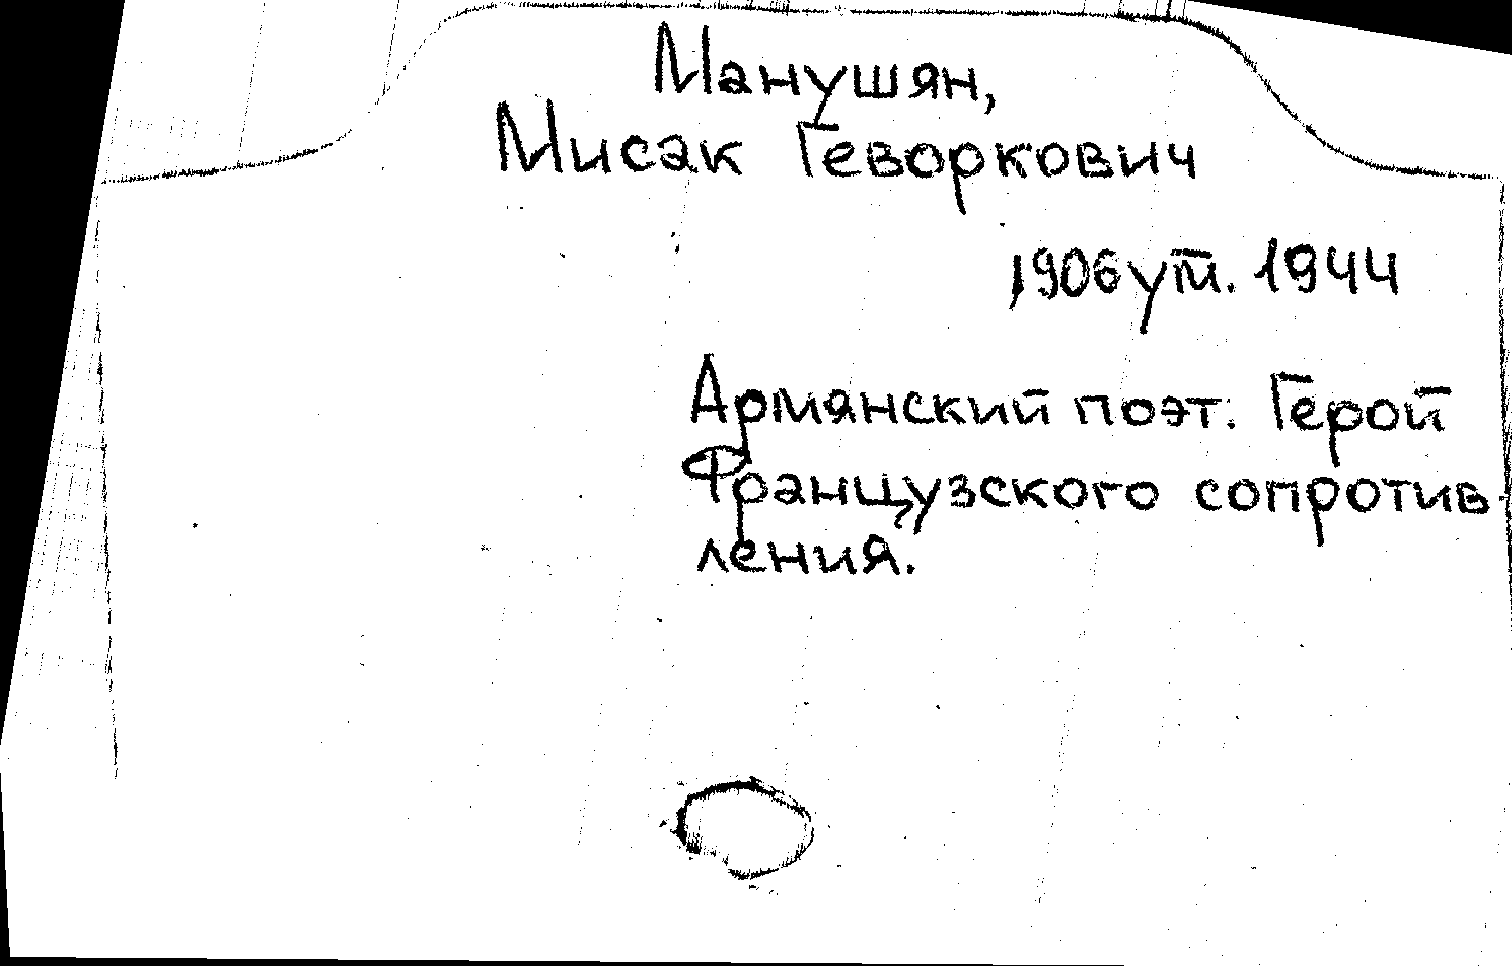 Манушян,
Мисак Геворкович
1906 ут. 1944
Армянский поэт. Герой
Французского сопротив-
ления.